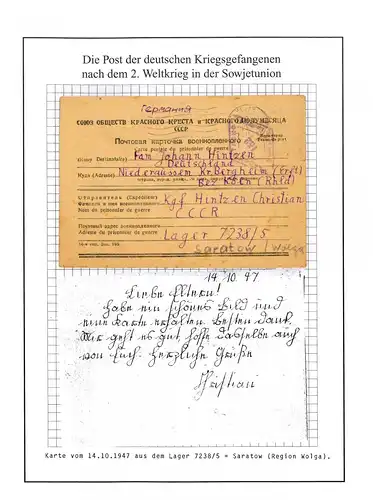 Die Post der deutschen Kriegsgefangenen
nach dem 2. Weltkrieg in der Sowjetunion
Германия
СОЮЗ ОБЩЕСТВ КРАСНОГО КРЕСТА и КРАСНОГО ПОЛУМЕСЯЦА
СССР
Почтовая карточка военнопленного
Carte postale du prisonnier de guerre
Кому (Destinataire) Fam Johann Hintzen
Deutschland
Куда (Adresse) Niederaussem Kr. Bergheim (Erft)
Bez Köln (Rhld)
Отправитель (Expéditeur)
Фамилия и имя военнопленного Kgf Hintzen Christian
Nom du prisonnier de guerre
CCCP
Почтовый адрес военнопленного
Adresse du prisonnier de guerre Lager 7238/5
Saratow (Wolga)
14.10.47
Liebe Eltern!
Habe ein schönes Bild und
eine Karte erhalten. Besten Dank.
Mir geht es gut, hoffe dasselbe auch
von Euch. Herzliche Grüße
Karte vom 14.10.1947 aus dem Lager 7238/5 = Saratow (Region Wolga).